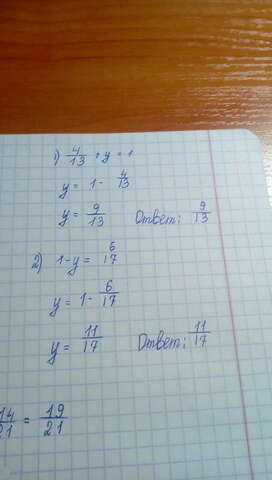 1) 4/13 + y = 1
y = 1 - 4/13
y = 9/13 Ответ: 9/13
2) 1 - y = 6/17
y = 1 - 6/17
y = 11/17 Ответ: 11/17
14/21 = 19/21